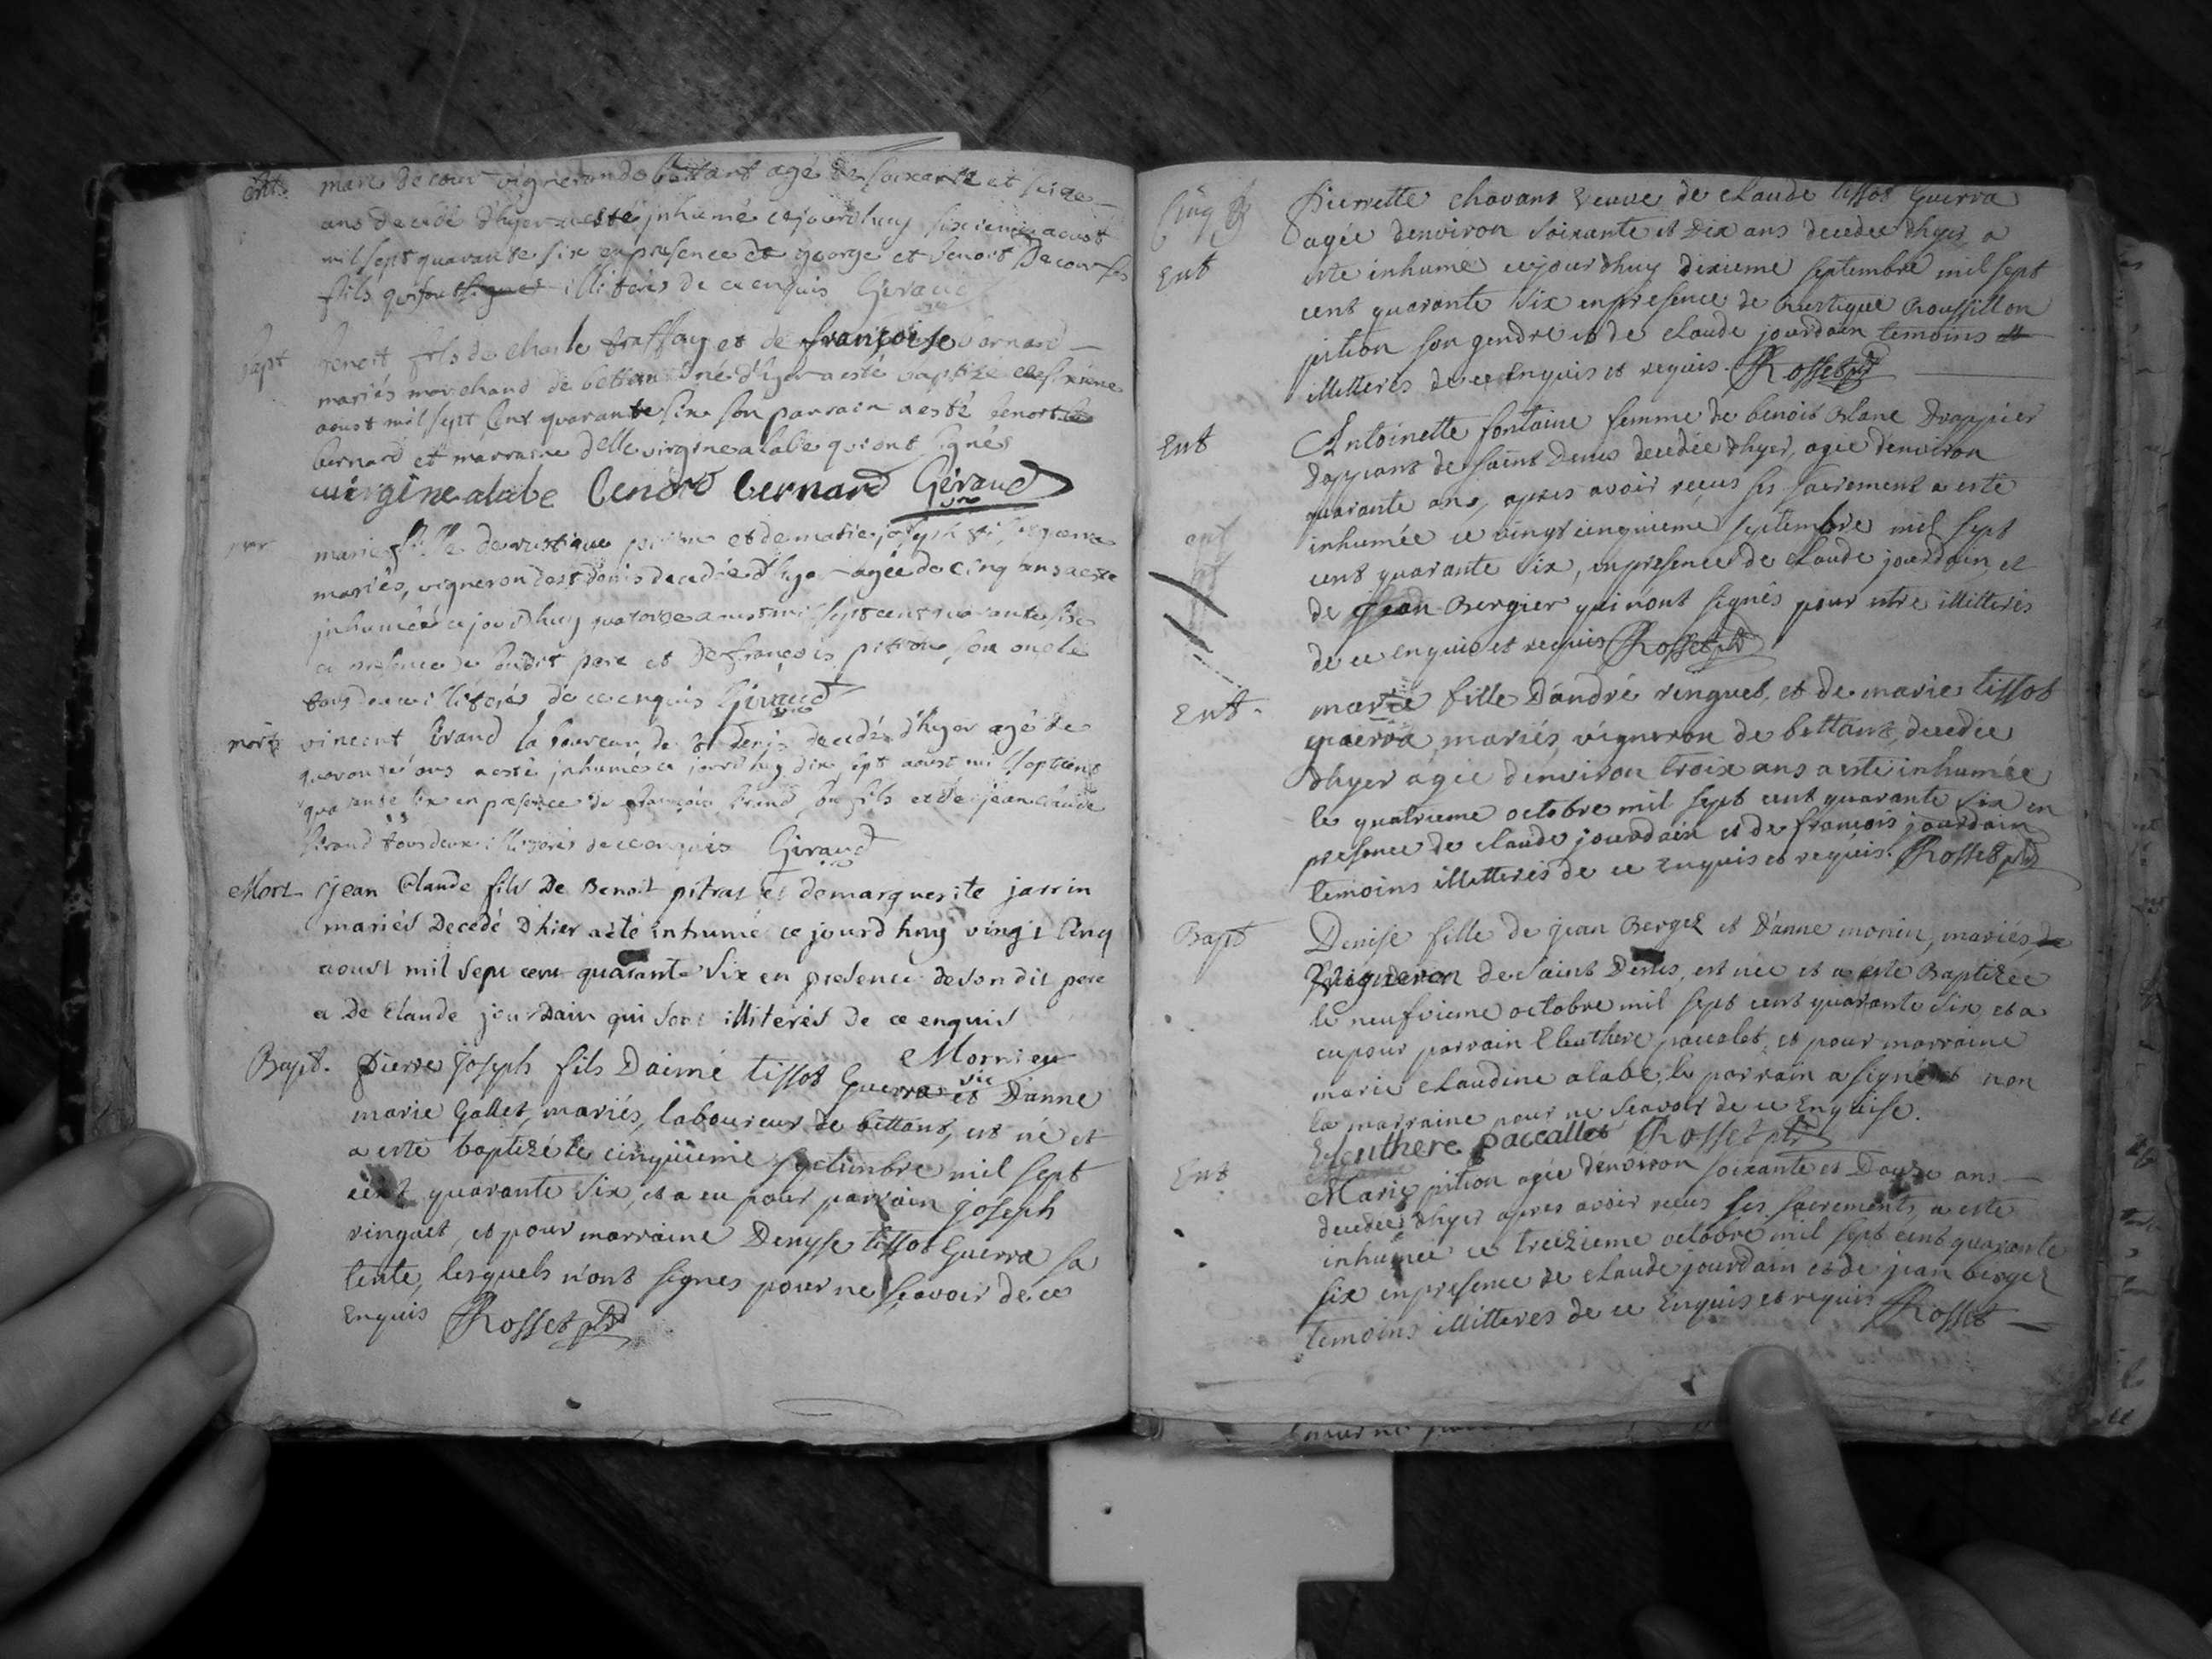 Ent. marc decour vigneron de bettant agé de soixante et seize
ans decedé d'hyer a esté jnhumé cejourdhuy sixieme aoust
mil sept quarante six en presence de george et benoit Decour ses
fils qui sont illiterés de ce enquis Geraud
bapt benoit fils de charle traffay et de françoise bernard
mariés marchand de bettan né d'hyer a esté baptizé ce sixieme
aoust mil sept cent quarante six son parrain a esté benoit
bernard et marraine delle virgine alabe qui ont signés
virgine alabe benoit bernard Geraud
marie fille de rustique pition et de marie
mariés, vigneron de st denis decedée d'hyer agée de cinq ans a esté
jnhumée cejourdhuy quatorze aoust mil sept cent quarante six
en presence de sondit pere et de françois pition son oncle
tous deux illiterés de ce enquis Geraud
mort vincent Brand laboureur de st denis decedé d'hyer agé de
quarante ans a esté jnhumé ce jourdhuy dix sept aoust mil sept cent
quarante six en presence de françois brand son fils et de jean claude
brand tous deux illiterés de ce enquis Geraud
Mort Jean Claude fils De Benoit pitrat et de marguerite jarrin
mariés Decedé D'hier a été inhumé ce jourd huy vingt Cinq
aoust mil sept cent quarante Six en presence de son dit pere
et De Claude jourDain qui sont illiterés de ce enquis
Mornieu
vic
Bapt. Pierre Joseph fils Daimé tissot Guerra et Danne
marie Gallet, mariés, laboureur de bettant, est né et
a esté baptizé le cinquieme septembre mil sept
cent quarante six, et a eu pour parrain joseph
ringuet, et pour marraine Denyse tissot Guerra sa
tente, lesquels n'ont signes pour ne sçavoir de ce
Enquis Rosset ptre
Pierrette chavant veuve de claude tissot Guerra
agée denviron soixante et dix ans decedée dhyer a
Ent esté inhumé cejourdhuy dixieme septembre mil sept
cent quarante six en presence de rustique Roussillon
pition son gendre et de claude jourdain temoins
illitterés de ce enquis et requis. Rosset ptre
Ent Antoinette fontaine femme de benoit blanc Drappier
dappiant de saint Denis decedée dhyer, agée denviron
quarante ans, apres avoir reçus ses sacrement a esté
inhumée ce vingt cinquieme septembre mil sept
cent quarante six, en presence de claude jourdain et
de jean Bergier qui n'ont signés pour etre illitterés
de ce enquis et requis Rosset ptre
Ent. marie fille D'andré ringuet, et de marie tissot
guerra mariés, vigneron de bettant, decedée
dhyer agée denviron trois ans a esté inhumée
le quatrieme octobre mil sept cent quarante six en
presence de claude jourdain et de francois jourdain
temoins illitterés de ce enquis et requis. Rosset ptre
Bapt Denise fille de jean Berger et D'anne monin, mariés,
vigneron de saint Denis, est née et a esté Baptizée
le neufvieme octobre mil sept cent quarante six, et a
eu pour parrain Eleuthere paccalet, et pour marraine
marie claudine alabe, le parrain a signé et non
la marraine pour ne sçavoir de ce Enquise.
Eleuthere paccallet Rosset ptre
Ent Marie pition agée denviron soixante et Douze ans
decedée dhyer apres avoir reçus ses sacrements, a esté
inhumée ce treizieme octobre mil sept cent quarante
six en presence de claude jourdain et de jean berger
temoins illitterés de ce Enquis et requis Rosset